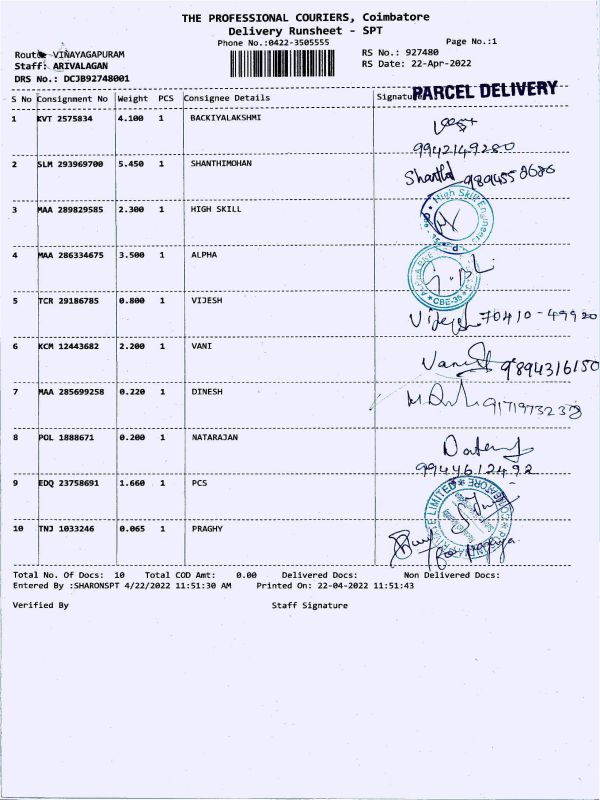 THE PROFESSIONAL COURIERS, Coimbatore
Delivery Runsheet - SPT
Phone No.:0422-3505555
Page No.:1
Route: VINAYAGAPURAM
RS No.: 927480
Staff: ARIVALAGAN
RS Date: 22-Apr-2022
DRS No.: DCJB92748001
PARCEL DELIVERY
S No Consignment No Weight PCS Consignee Details Signature
1 KVT 2575834 4.100 1 BACKIYALAKSHMI
9942149280
2 SLM 293969700 5.450 1 SHANTHIMOHAN
Shanthi 9894558686
3 MAA 289829585 2.300 1 HIGH SKILL
High Skill Engineers
4 MAA 286334675 3.500 1 ALPHA
CBE-35
5 TCR 29186785 0.800 1 VIJESH
Vijesh 70410-49920
6 KCM 12443682 2.200 1 VANI
Vani 9894316150
7 MAA 285699258 0.220 1 DINESH
9171973238
8 POL 1888671 0.200 1 NATARAJAN
9944612492
9 EDQ 23758691 1.660 1 PCS
PRIVATE LIMITED
10 TNJ 1033246 0.065 1 PRAGHY
Total No. Of Docs: 10 Total COD Amt: 0.00 Delivered Docs: Non Delivered Docs:
Entered By :SHARONSPT 4/22/2022 11:51:30 AM Printed On: 22-04-2022 11:51:43
Verified By Staff Signature